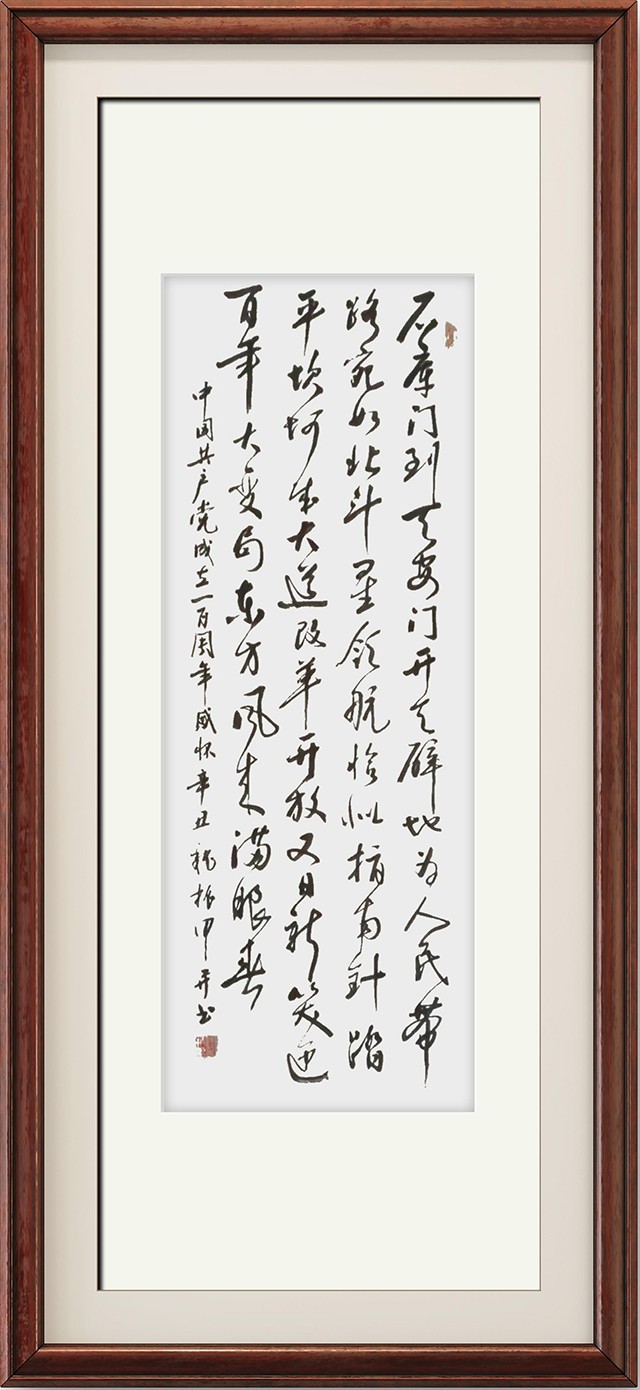 石库门到天安门开天辟地为人民带
路宛如北斗星领航恰似指南针踏
平坎坷成大道改革开放又日新笑迎
百年大变局东方风来满眼春
中国共产党成立一百周年感怀辛丑振甲并书